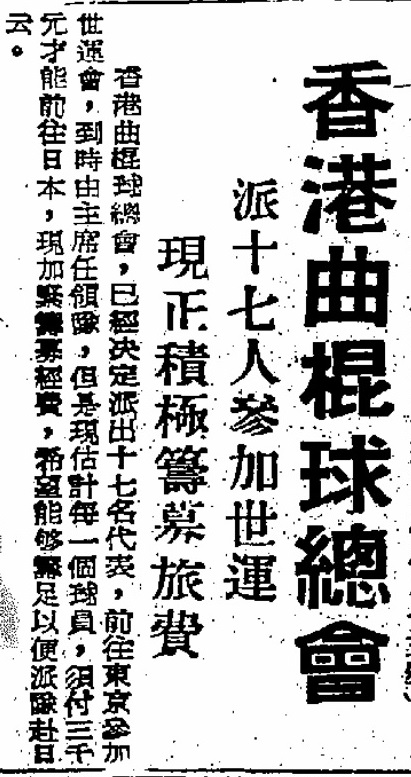 香港曲棍球總會
派十七人參加世運
現正積極籌募旅費
香港曲棍球總會，已經決定派出十七名代表，前往東京參加
世運會，到時由主席任領隊，但是現估計每一個球員，須付三千
元才能前往日本，現加緊籌募經費，希望能够籌足以便派隊赴日
云。